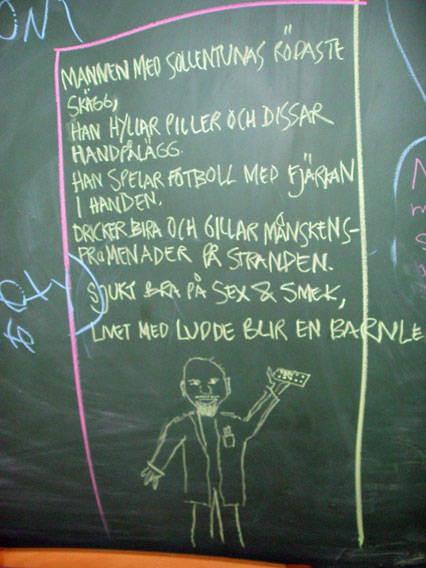 MANNEN MED SOLLENTUNAS RÖDASTE
SKÄGG,
HAN HYLLAR PILLER OCH DISSAR
HANDPÅLÄGG.
HAN SPELAR FOTBOLL MED FJÄRKAN
I HANDEN.
DRICKER BIRA OCH GILLAR MÅNSKENS-
PROMENADER PÅ STRANDEN.
SJUKT BRA PÅ SEX & SMEK,
LIVET MED LUDDE BLIR EN BARNLE